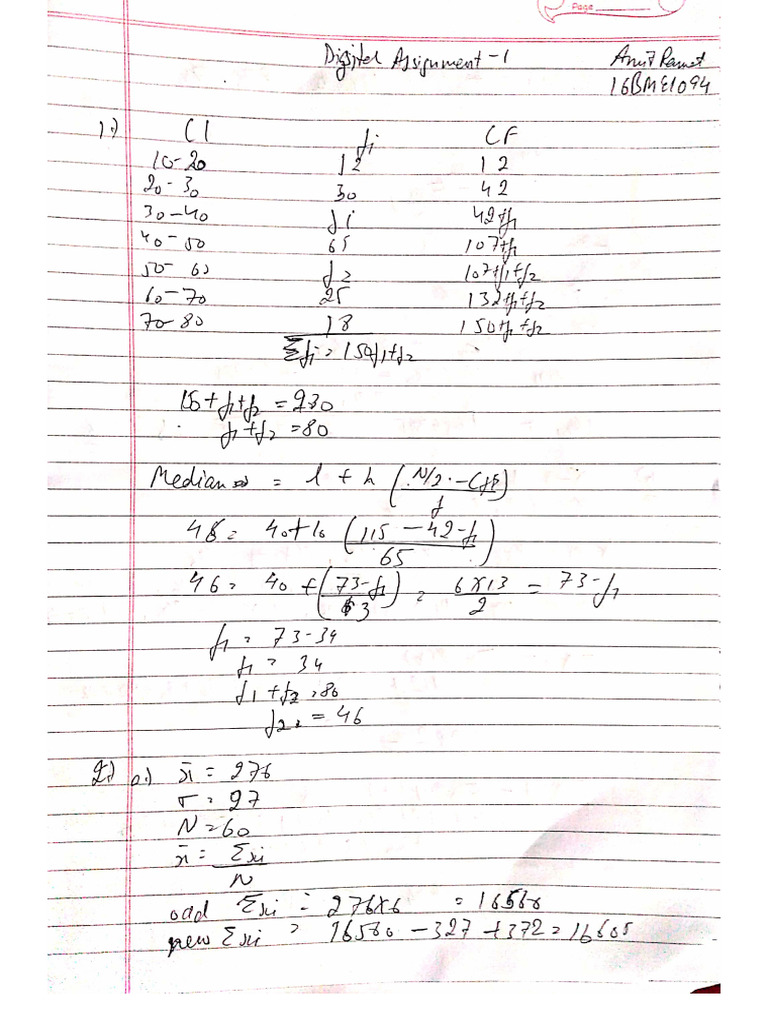 Page
Digital Assignment-1
16BME1094
1.) CI fi CF
10-20 12 12
20-30 30 42
30-40 f1 42+f1
40-50 65 107+f1
50-60 f2 107+f1+f2
60-70 25 132+f1+f2
70-80 18 150+f1+f2
Σfi = 150+f1+f2
150+f1+f2 = 230
f1+f2 = 80
Median = l + h (N/2 - Cf / f)
46 = 40+10 (115-42-f1 / 65)
46 = 40 + (73-f1 / 13) = 6×13 / 2 = 73-f1
f1 = 73-34
f1 = 34
f1+f2 = 80
f2 = 46
2.) a.) x̄ = 276
σ = 27
N = 60
x̄ = Σxi / N
old Σxi = 276×6 = 16560
new Σxi = 16560 - 327 + 372 = 16605